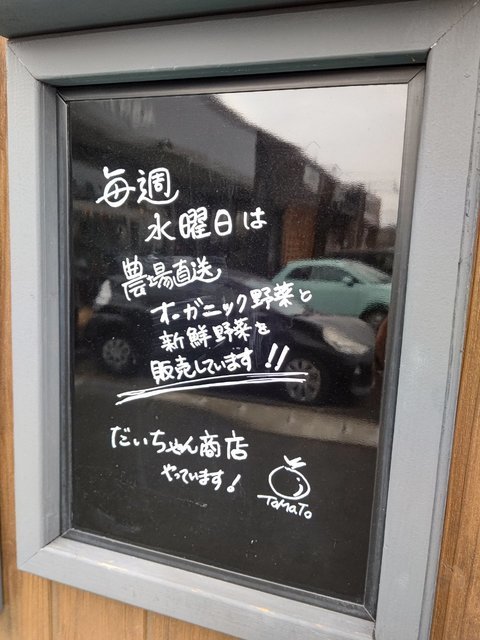 毎週
水曜日は
農場直送
オーガニック野菜と
新鮮野菜を
販売しています!!
だいちゃん商店
やっています!
ToMaTo